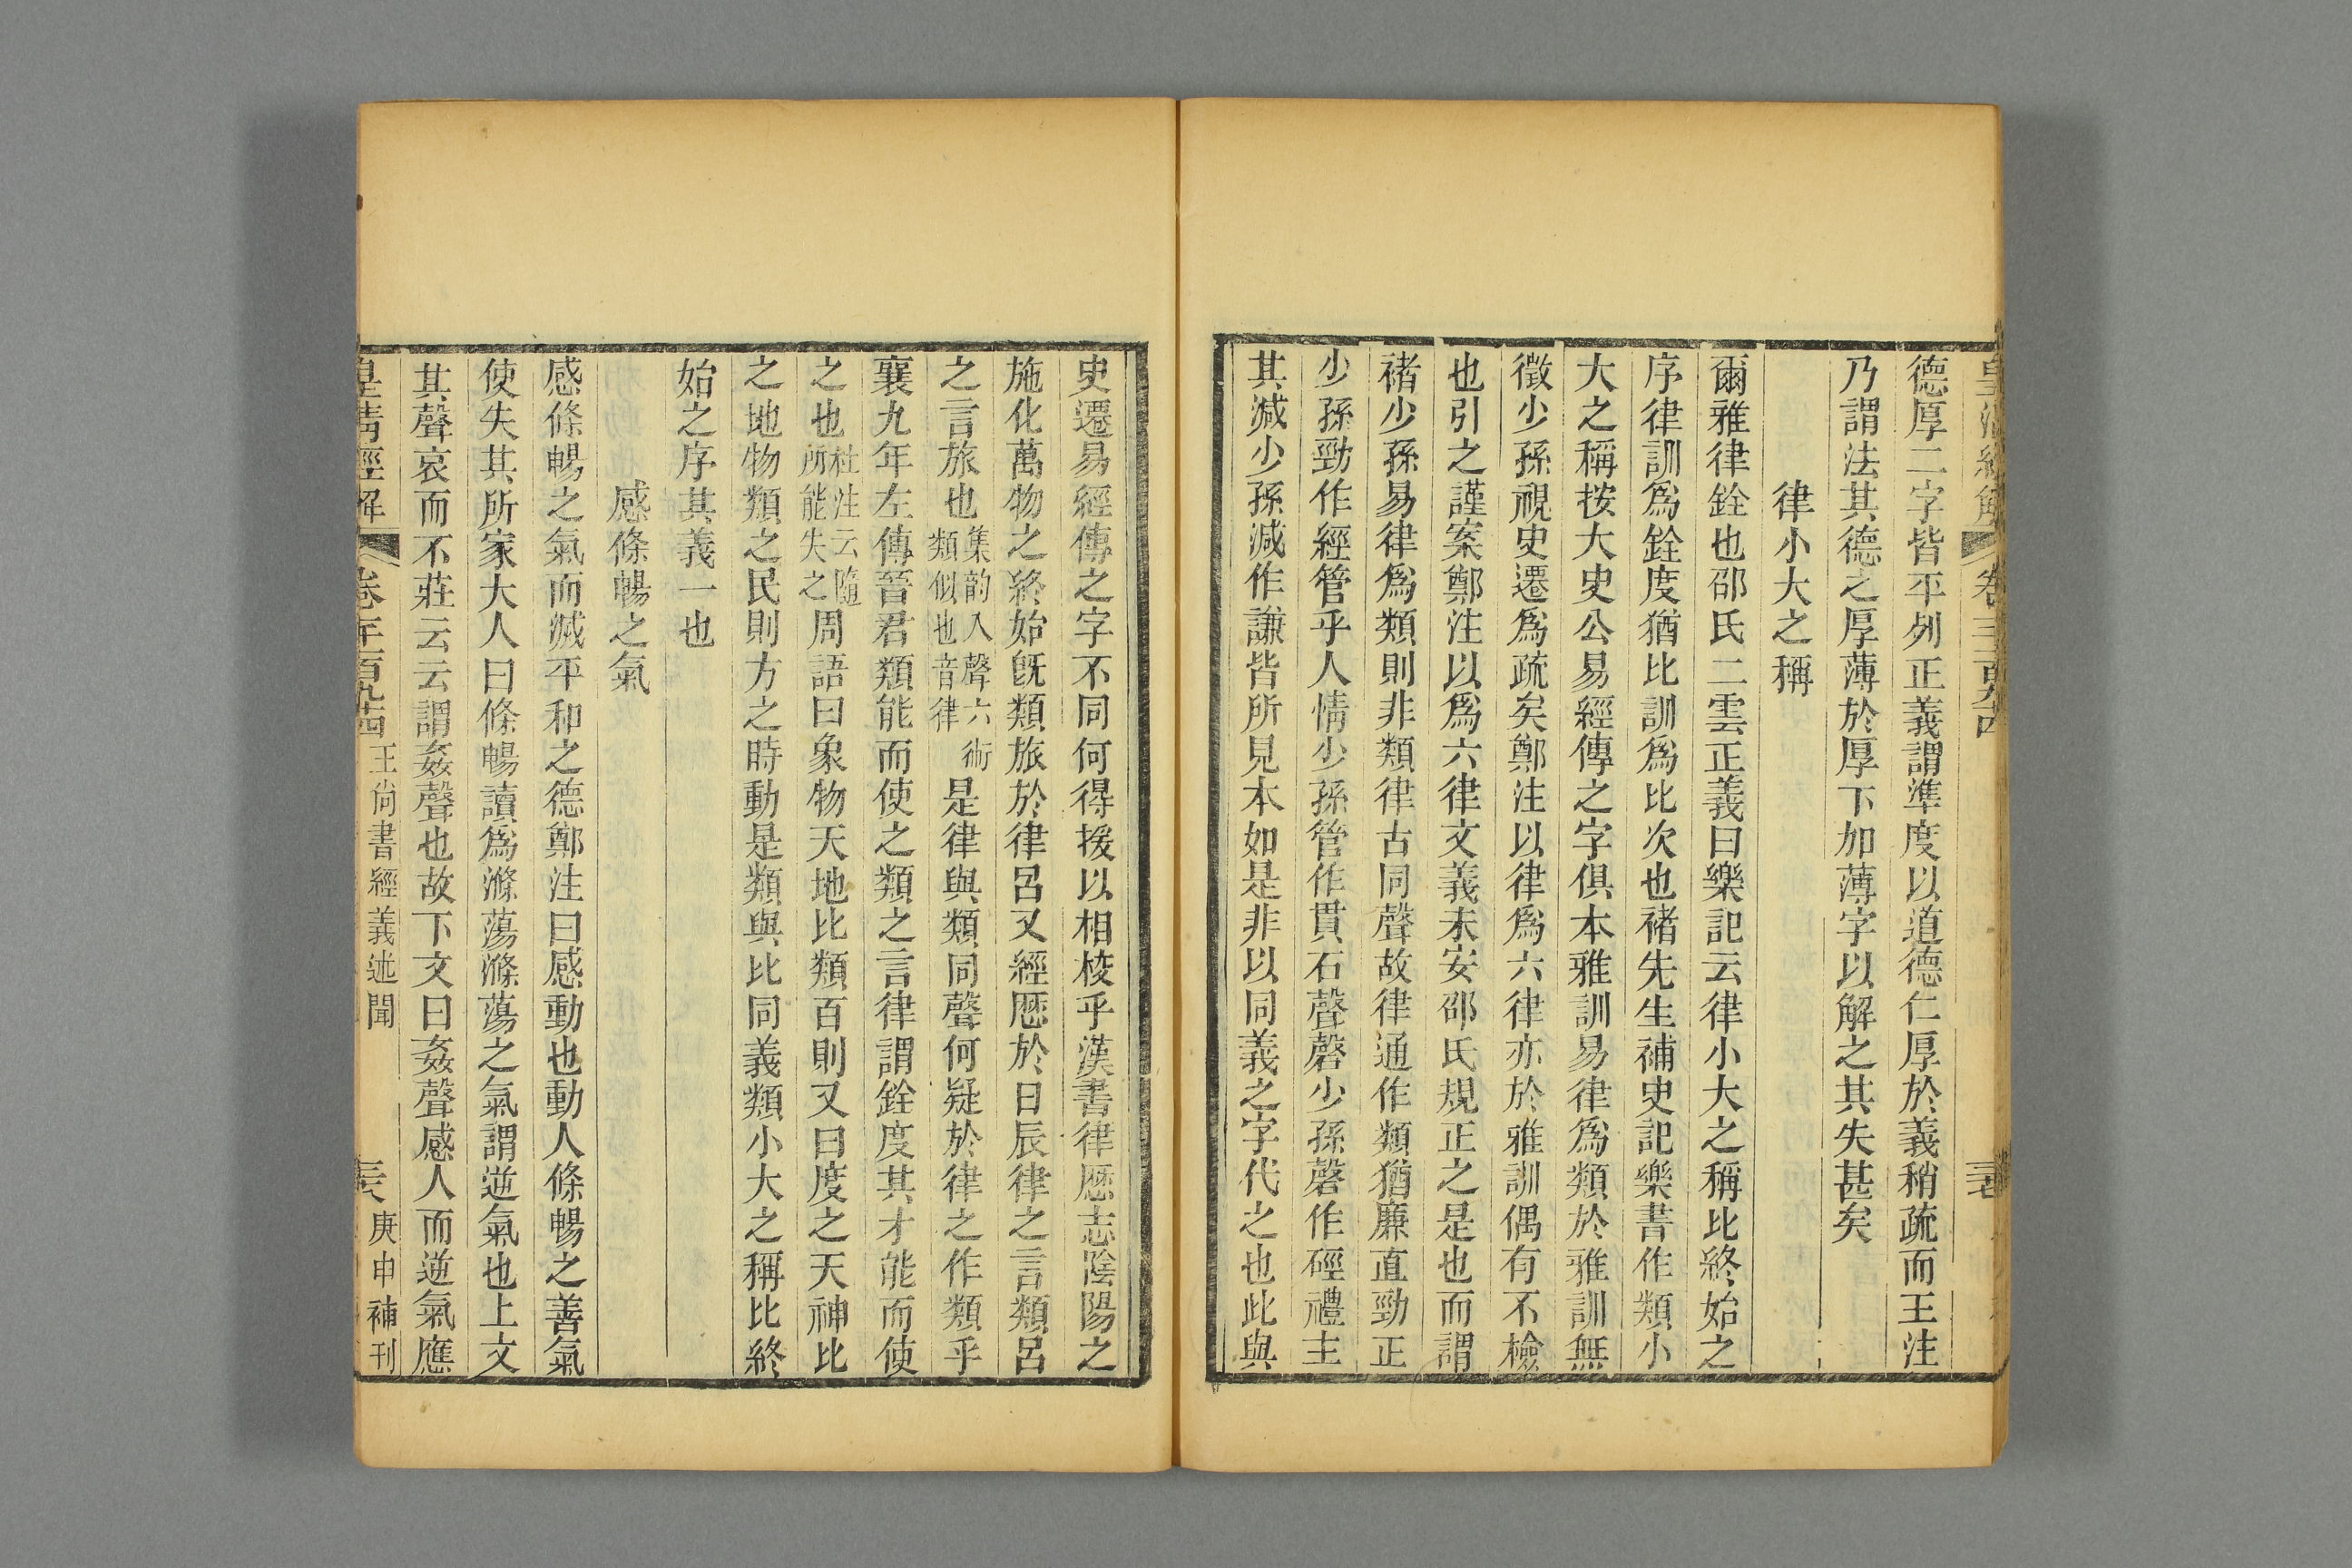 德厚二字皆平列正義謂準度以道德仁厚於義稍疏而王注
乃謂法其德之厚薄於厚下加薄字以解之其失甚矣
律小大之稱
爾雅律銓也邵氏二雲正義曰樂記云律小大之稱比終始之
序律訓爲銓度猶比訓爲比次也褚先生補史記樂書作類小
大之稱按大史公易經傳之字俱本雅訓易律爲類於雅訓無
徵少孫視史遷爲疏矣鄭注以律爲六律亦於雅訓偶有不檢
也引之謹案鄭注以爲六律文義未安邵氏規正之是也而謂
褚少孫易律爲類則非類律古同聲故律通作類猶廉直勁正
少孫勁作經管乎人情少孫管作貫石聲磬少孫磬作硜禮主
其減少孫減作謙皆所見本如是非以同義之字代之也此與
史遷易經傳之字不同何得援以相梭乎漢書律歴志陰陽之
施化萬物之終始旣類旅於律呂又經歴於日辰律之言類呂
之言旅也集韵入聲六術類似也音律是律與類同聲何疑於律之作類乎
襄九年左傳晉君類能而使之類之言律謂銓度其才能而使
之也杜注云隨所能失之周語曰象物天地比類百則又曰度之天神比
之地物類之民則方之時動是類與比同義類小大之稱比終
始之序其義一也
感條暢之氣
感條暢之氣而滅平和之德鄭注曰感動也動人條暢之善氣
使失其所家大人曰條暢讀爲滌蕩滌蕩之氣謂逆氣也上文
其聲哀而不莊云云謂姦聲也故下文曰姦聲感人而逆氣應
皇清經解 卷千一百九十四 王尚書經義述聞 庚申補刊